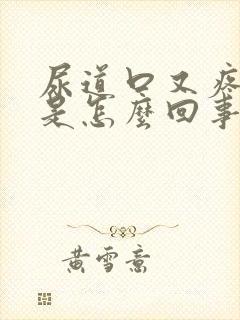 尿道口又疼
是怎麼回事
黄雪意